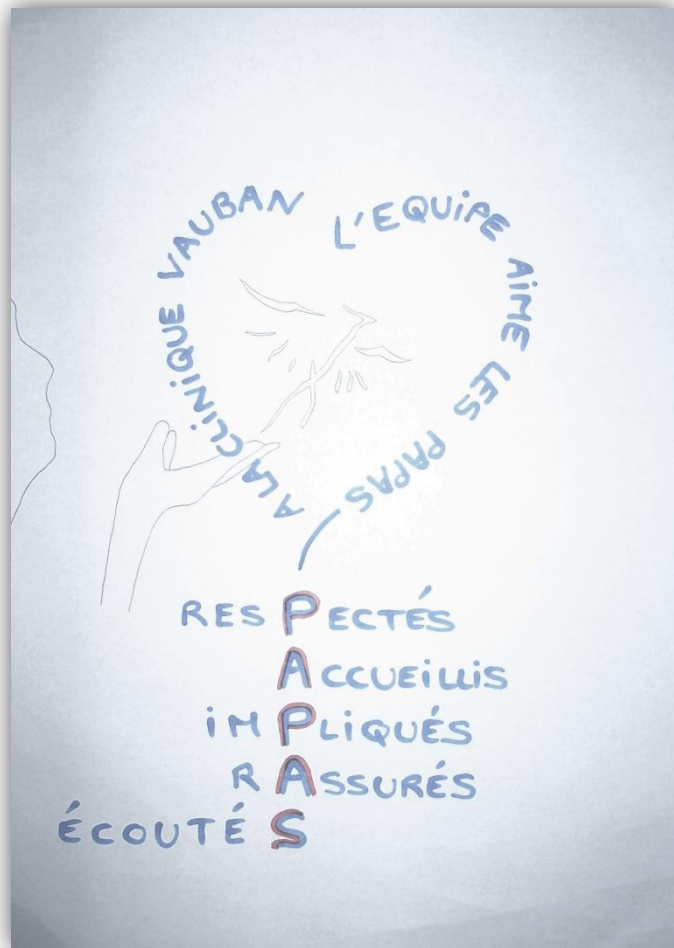 A LA CLINIQUE VAUBAN
L'EQUIPE AIME LES PAPAS
RESPECTÉS
ACCUEILLIS
IMPLIQUÉS
RASSURÉS
ÉCOUTÉS